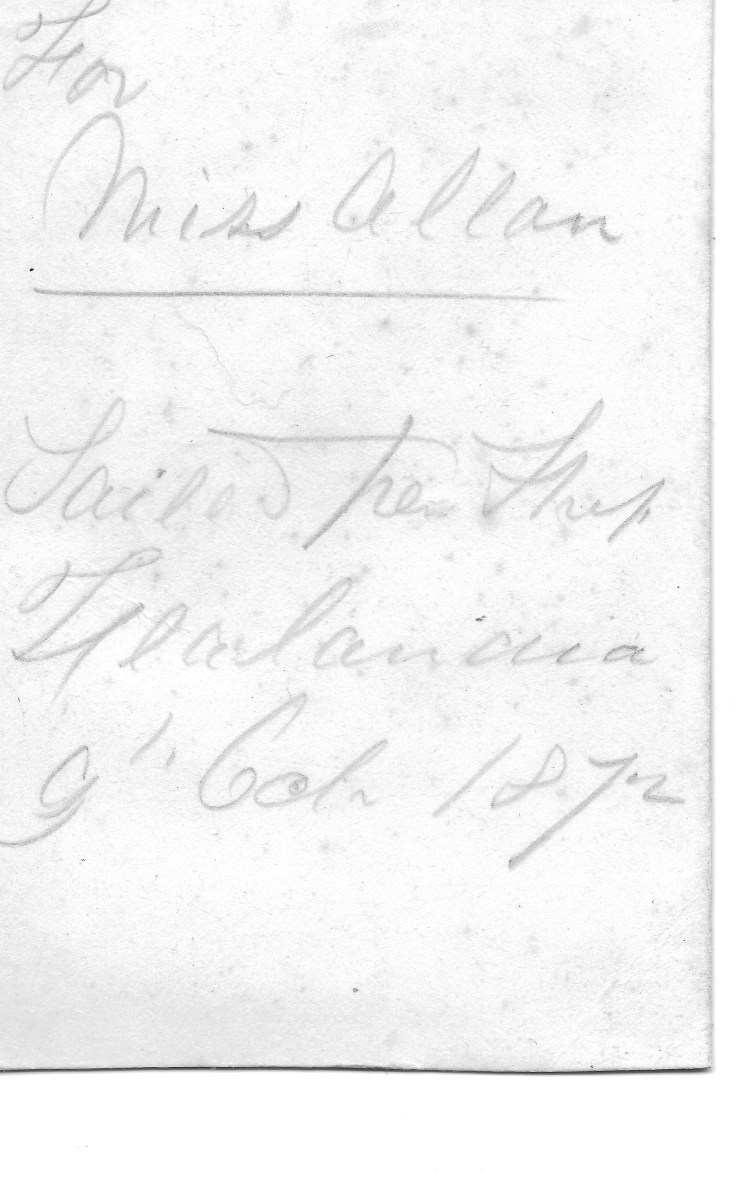 For
Miss Allan
Sailed per Ship
Zealandia
9' Oct 1872